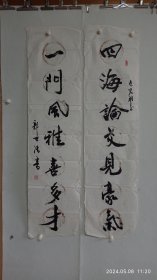 四海論交見豪氣
一門風雅喜多才
2024.05.08 11:20